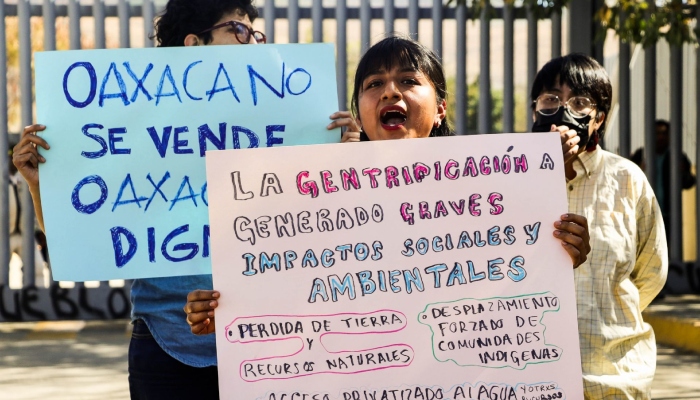 OAXACA NO
SE VENDE
OAXAC
DIGN
LA GENTRIFICACIÓN A
GENERADO GRAVES
IMPACTOS SOCIALES Y
AMBIENTALES
• PERDIDA DE TIERRA
Y
RECURSOS NATURALES
• DESPLAZAMIENTO
FORZADO DE
COMUNIDADES
INDIGENAS
ACCESO PRIVATIZADO AL AGUA Y OTRXS
RECURSOS